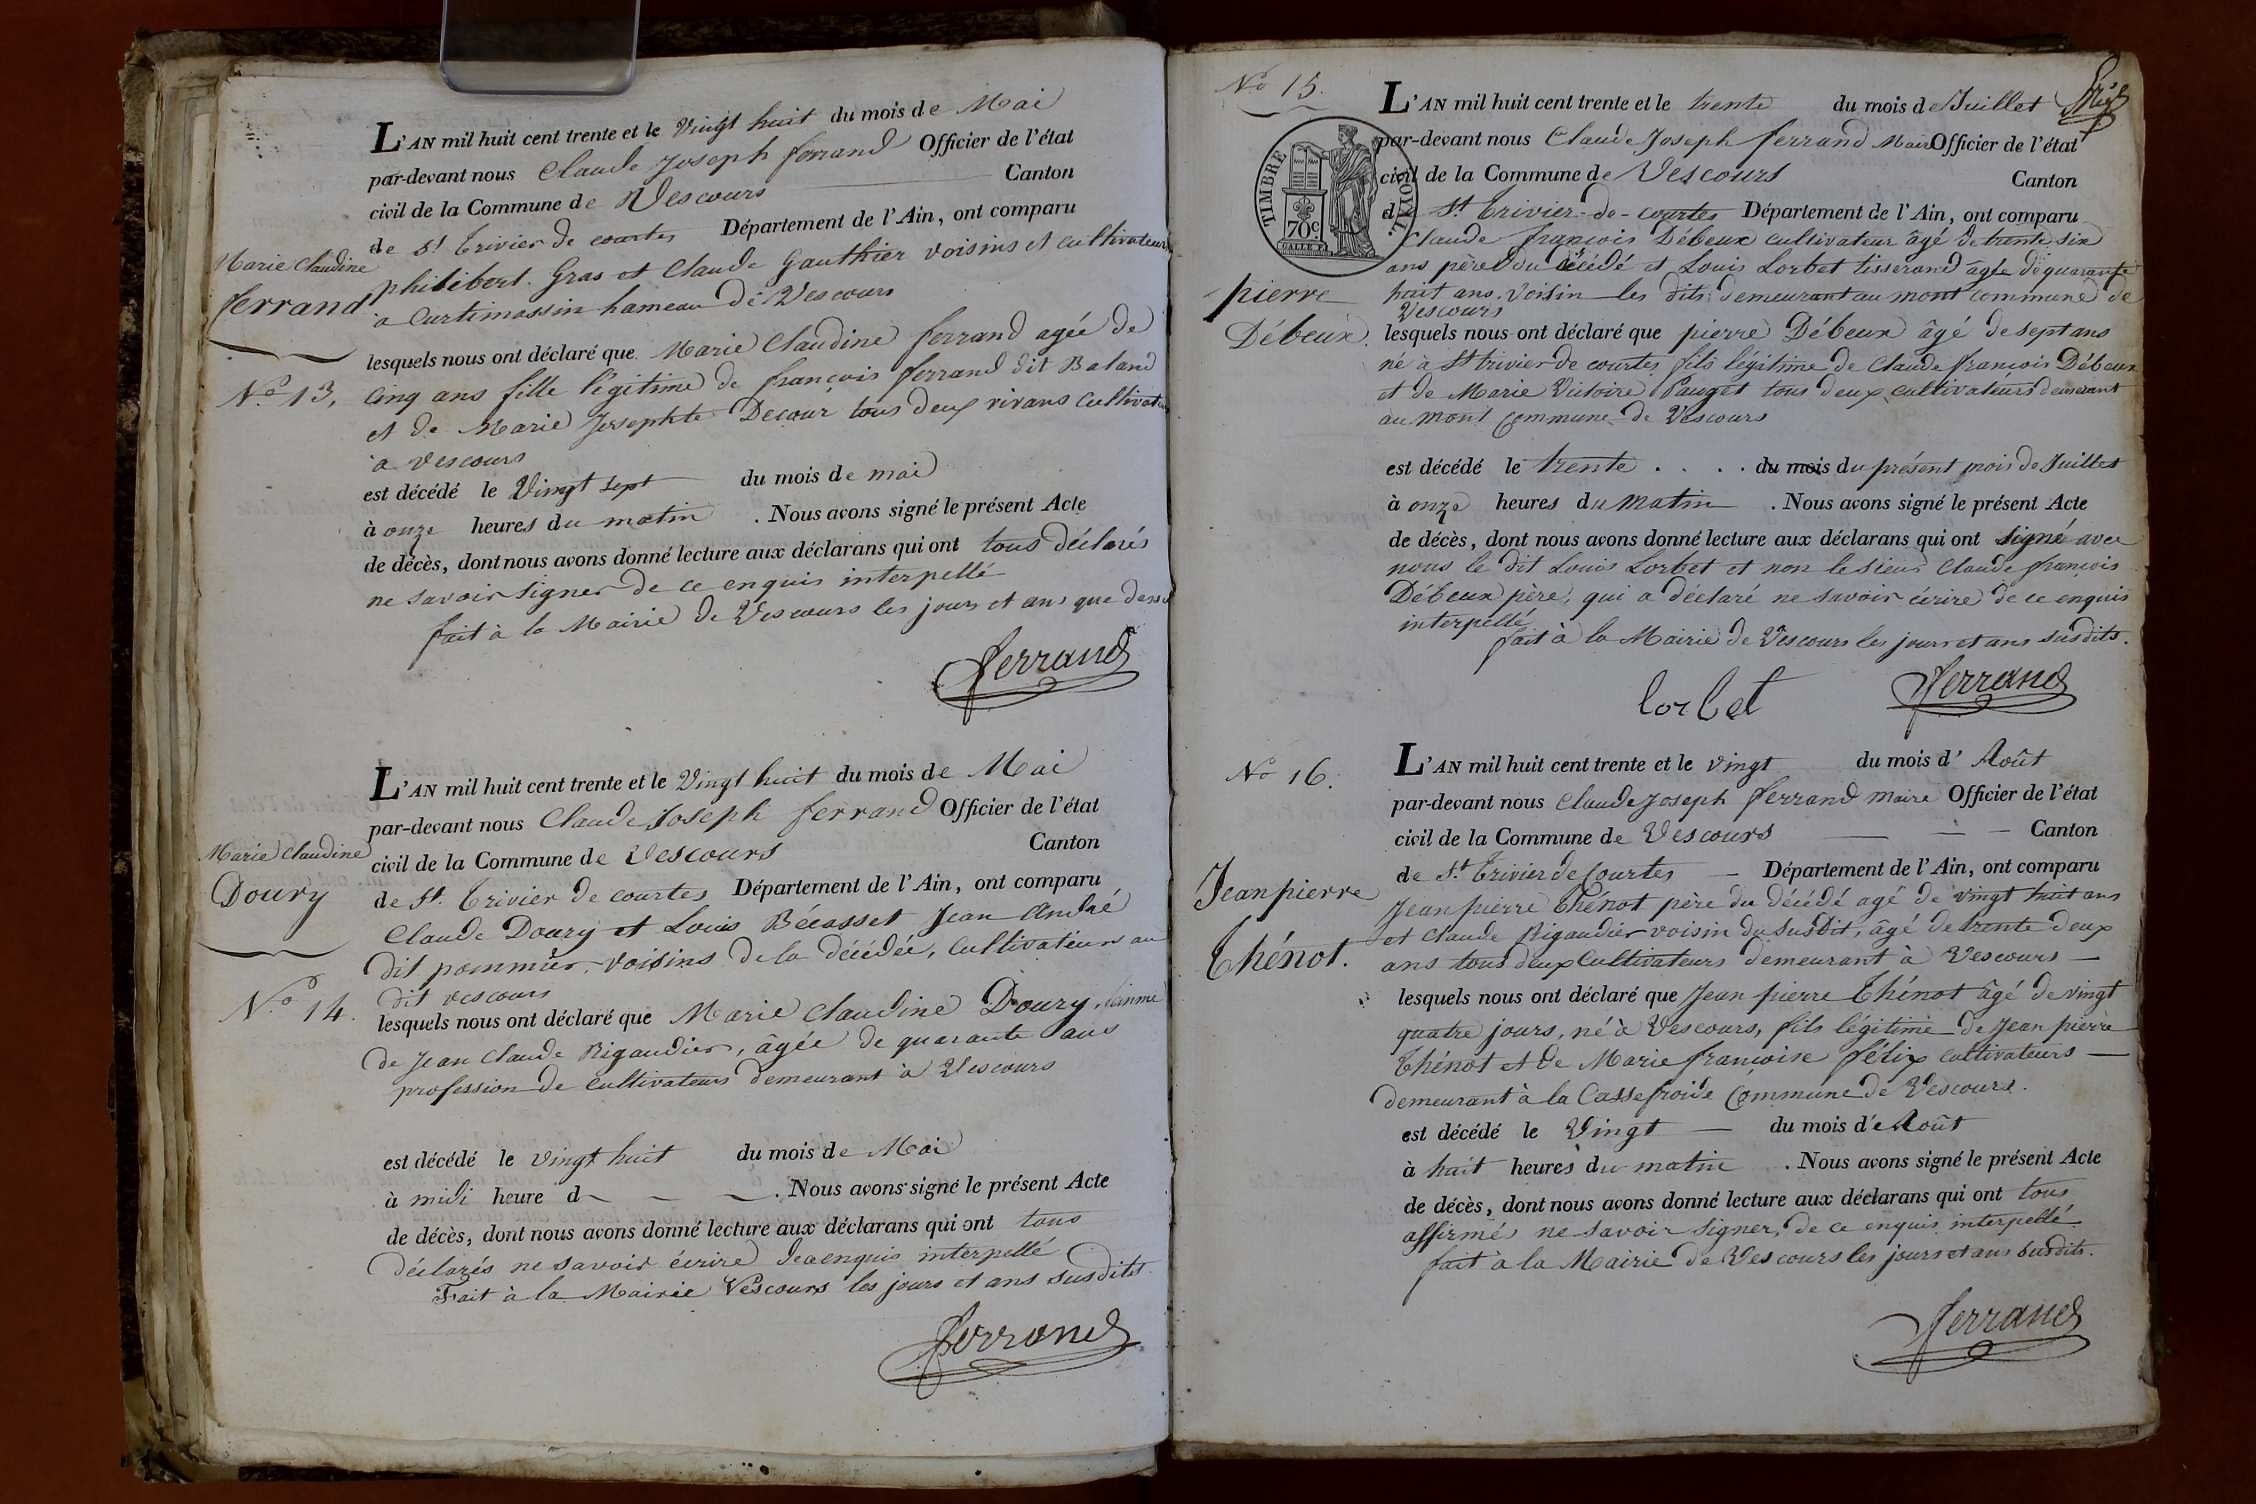 L'AN mil huit cent trente et le Vingt huit du mois de Mai
par-devant nous Claude Joseph ferrand Officier de l'état
civil de la Commune de Vescours Canton
de St Trivier de courtes Département de l'Ain, ont comparu
philibert Gras et Claude Gauthier voisins et cultivateurs
à Curtimassin hameau de Vescours
Marie Claudine
ferrand
No 13,
lesquels nous ont déclaré que Marie Claudine ferrand agée de
Cinq ans fille légitime de françois ferrand dit Baland
et de Marie Josephte Decour tous deux vivans cultivateurs
à Vescours
est décédé le Vingt sept du mois de mai
à onze heures du matin . Nous avons signé le présent Acte
de décès, dont nous avons donné lecture aux déclarans qui ont tous déclarés
ne savoir signer de ce enquis interpellé
fait à la Mairie de Vescours les jours et ans que dessus
ferrand
L'AN mil huit cent trente et le Vingt huit du mois de Mai
par-devant nous Claude Joseph ferrand Officier de l'état
civil de la Commune de Vescours Canton
de St. Trivier de courtes Département de l'Ain, ont comparu
Claude Doury et Louis Bécasset Jean André
dit pommier voisins de la décédée, Cultivateurs au
dit vescours
Marie Claudine
Doury
No 14.
lesquels nous ont déclaré que Marie Claudine Doury
de Jean Claude Rigaudier, âgée de quarante ans
profession de cultivateurs demeurant à Vescours
est décédé le vingt huit du mois de Mai
à midi heure d . Nous avons signé le présent Acte
de décès, dont nous avons donné lecture aux déclarans qui ont tous
déclarés ne savoir écrire de ce enquis interpellé
Fait à la Mairie Vescours les jours et ans susdits
ferrand
No 15.
L'AN mil huit cent trente et le trente du mois de Juillet
par-devant nous Claude Joseph ferrand Maire Officier de l'état
civil de la Commune de Vescours Canton
de St Trivier-de-courtes Département de l'Ain, ont comparu
TIMBRE ROYAL.
70c.
Claude françois Débeux cultivateur âgé de trente six
ans père du décédé et Louis Lorbet tisserand âgé de quarante
huit ans voisin les dits demeurant au mont commune de
Vescours
pierre
Débeux.
lesquels nous ont déclaré que pierre Débeux âgé de sept ans
né à St trivier de courtes fils légitime de Claude françois Débeux
et de Marie Victoire Pauget tous deux cultivateurs demeurant
au Mont Commune de Vescours
est décédé le trente . . . . du mois du présent mois de Juillet
à onze heures du Matin . Nous avons signé le présent Acte
de décès, dont nous avons donné lecture aux déclarans qui ont signé avec
nous le dit Louis Lorbet et non le sieur Claude françois
Débeux père, qui a déclaré ne savoir écrire de ce enquis
interpellé
fait à la Mairie de Vescours les jours et ans susdits.
lorbet ferrand
No 16.
L'AN mil huit cent trente et le vingt du mois d' Août
par-devant nous Claude Joseph ferrand maire Officier de l'état
civil de la Commune de Vescours Canton
de St. Trivier de Courtes Département de l'Ain, ont comparu
Jean pierre Thénot père du décédé agé de vingt huit ans
et Claude Rigaudier voisin du susdit, âgé de trente deux
ans tous deux Cultivateurs demeurant à Vescours
Jean pierre
Thénot.
lesquels nous ont déclaré que Jean pierre Thénot âgé de vingt
quatre jours, né à Vescours, fils légitime de Jean pierre
Thénot et de Marie françoise félix cultivateurs
demeurant à la Cassefroide Commune de Vescours.
est décédé le Vingt du mois d'e Août
à huit heures du matin . Nous avons signé le présent Acte
de décès, dont nous avons donné lecture aux déclarans qui ont tous
affirmé ne savoir signer, de ce enquis interpellé
fait à la Mairie de Vescours les jours et ans susdits.
ferrand